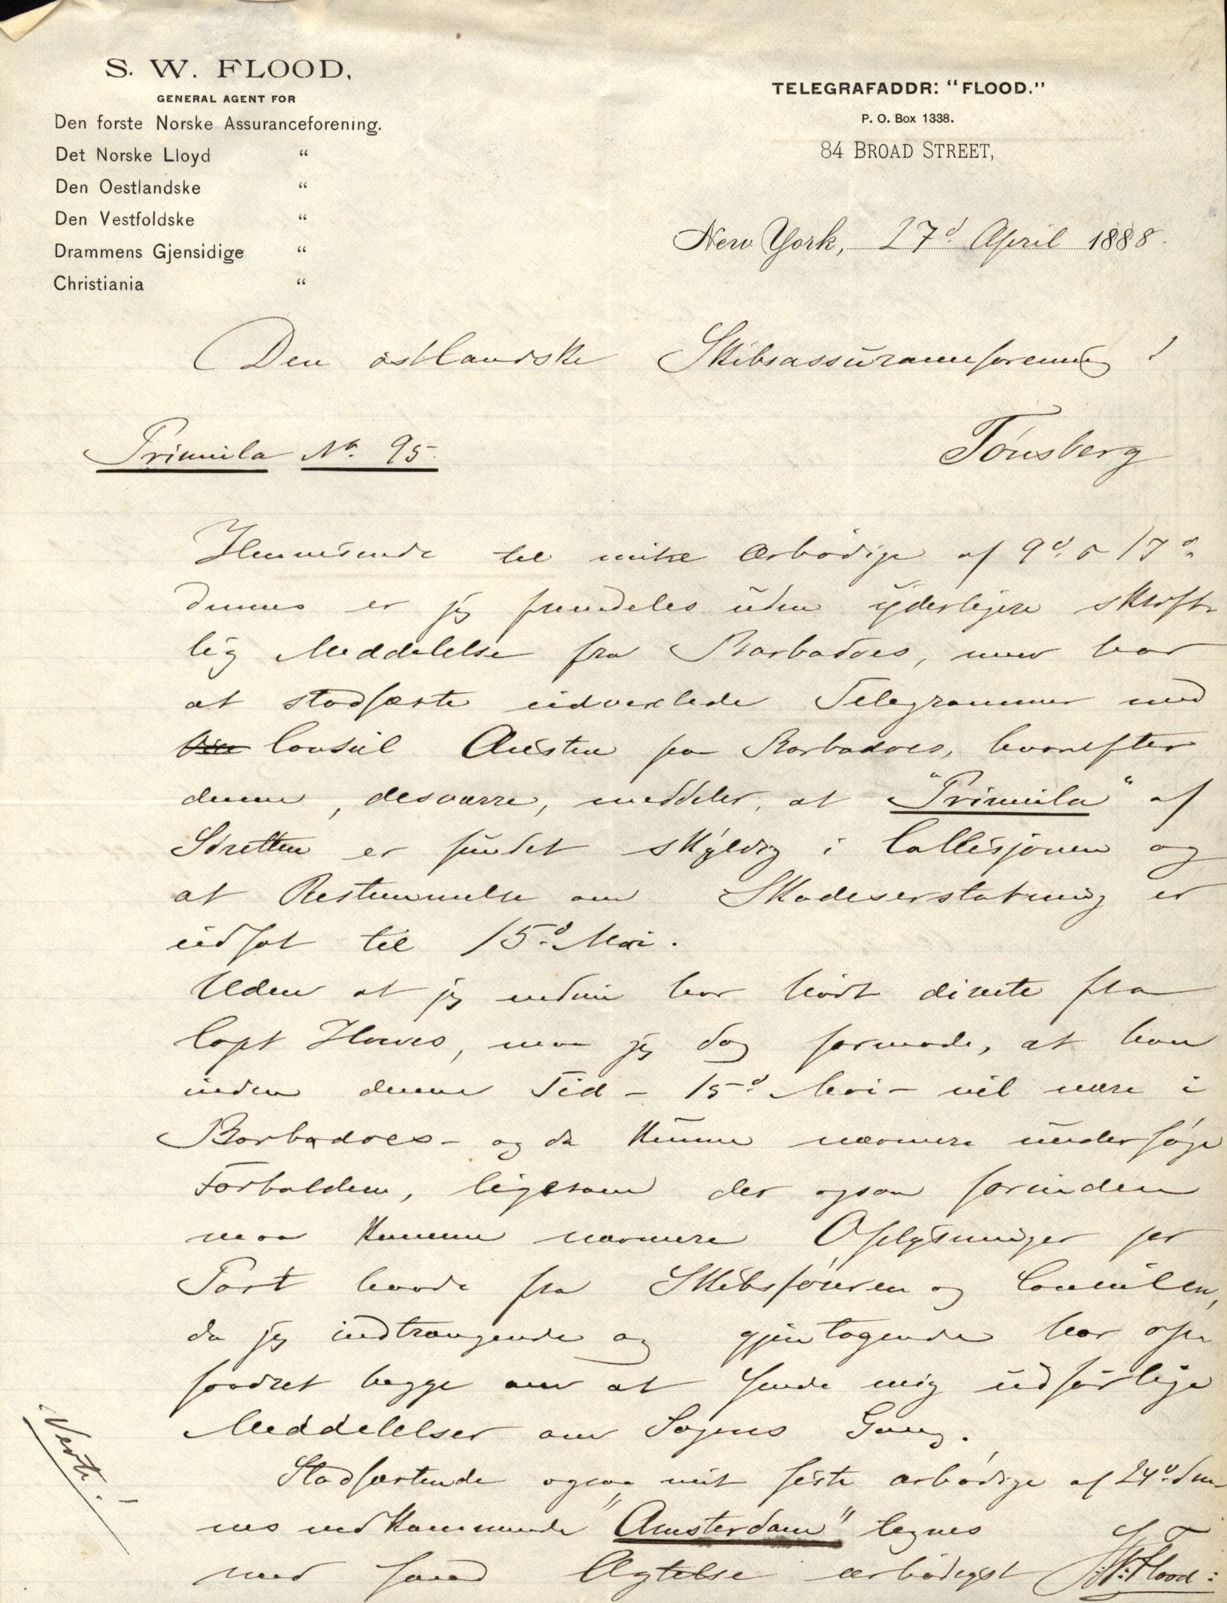 S. W. FLOOD,
GENERAL AGENT FOR
Den forste Norske Assuranceforening.
Det Norske Lloyd "
Den Oestlandske "
Den Vestfoldske "
Drammens Gjensidige "
Christiania "
TELEGRAFADDR: "FLOOD."
P. O. Box 1338.
84 BROAD STREET,
New York, 27d April 1888.
Den østlandske Skibsassuranceforening!
Tönsberg
Primula No. 95.
Henvisende til mine ærbödige af 9d. & 17d.
dennes er jeg fremdeles uden yderligere skrift-
lig Meddelelse fra Barbadoes, men har
at stadfæste udvexlede Telegrammer med
Consul Austen paa Barbadoes, hvorefter
denne, desværre, meddeler, at "Primula" af
Söretten er fundet skyldig i Collisjonen og
at Bestemmelse om Skadeserstatning er
udsat til 15d. Mai.
Uden at jeg endnu har hört direkte fra
Capt Howes, maa jeg dog formode, at han
inden denne Tid - 15d. Mai - vil være i
Barbadoes - og da kunne nærmere undersöge
Forholdene, ligesom der ogsaa forinden
maa komme nærmere Oplysninger per
Post baade fra Skibsföreren og Consulen,
da jeg indtrængende og gjentagende har op-
fordret begge om at sende mig udförlige
Meddelelser om Sagens Gang.
Stadfæstende ogsaa mit sidste ærbödige af 24d. den-
nes vedkommende "Amsterdam" tegnes
med sand Agtelse ærbödigst S. W. Flood:
Verte!